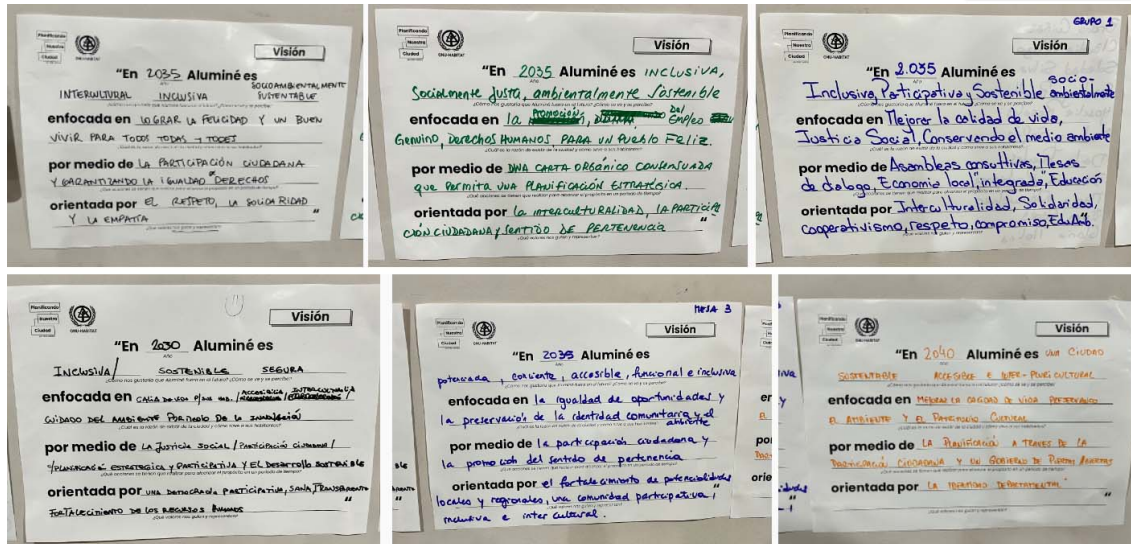 Planificando
Nuestra
Ciudad
ONU-HABITAT
Visión
"En 2035 Aluminé es
INTERCULTURAL INCLUSIVA SOCIOAMBIENTALMENTE
SUSTENTABLE
enfocada en LOGRAR LA FELICIDAD Y UN BUEN
VIVIR PARA TODOS TODAS Y TODES
por medio de LA PARTICIPACIÓN CIUDADANA
Y GARANTIZANDO LA IGUALDAD DERECHOS
orientada por EL RESPETO, LA SOLIDARIDAD
Y LA EMPATÍA "
Planificando
Nuestra
Ciudad
ONU-HABITAT
Visión
"En 2035 Aluminé es INCLUSIVA,
Socialmente Justa, ambientalmente Sostenible
enfocada en la PROMOCIÓN, Del EMPleo
Genuino, DERECHOS HUMANOS PARA UN PUEBLO FELIZ.
por medio de UNA CARTA ORGÁNICA CONSENSUADA
que PERMITA UNA PLANIFICACIÓN ESTRATÉGICA.
orientada por la INTERCULTURALIDAD, LA PARTICIPA
CIÓN CIUDADANA y SENTIDO DE PERTENENCIA "
GRUPO 1
Planificando
Nuestra
Ciudad
ONU-HABITAT
Visión
"En 2.035 Aluminé es
Inclusiva, Participativa y Sostenible socio-
ambientalmente
enfocada en Mejorar la calidad de vida,
Justicia Social, Conservando el medio ambiente
por medio de Asambleas consultivas, Mesas
de dialogo, Economía local "integrada", Educación
orientada por Interculturalidad, Solidaridad,
cooperativismo, respeto, compromiso, Ed.Amb.
Planificando
Nuestra
Ciudad
ONU-HABITAT
Visión
"En 2030 Aluminé es
INCLUSIVA/ SOSTENIBLE SEGURA
enfocada en
CUIDADO DEL AMBIENTE POR MEDIO DE LA
por medio de LA JUSTICIA SOCIAL / PARTICIPACIÓN CIUDADANA /
/PLANIFICACIÓN ESTRATEGICA Y PARTICIPATIVA Y EL DESARROLLO SOSTENIBLE
orientada por UNA DEMOCRACIA PARTICIPATIVA, SANA,
FORTALECIMIENTO DE LOS RECURSOS HUMANOS "
MESA 3
Planificando
Nuestra
Ciudad
ONU-HABITAT
Visión
"En 2035 Aluminé es
potenciada, conciente, accesible, funcional e inclusiva
enfocada en la igualdad de oportunidades y
la preservación de la identidad comunitaria y el
ambiente
por medio de la participación ciudadana y
la promoción del sentido de pertenencia
orientada por el fortalecimiento de potencialidades
locales y regionales, una comunidad participativa,
inclusiva e intercultural. "
Planificando
Nuestra
Ciudad
ONU-HABITAT
Visión
"En 2040 Aluminé es UNA CIUDAD
SUSTENTABLE ACCESIBLE E INTER-PLURICULTURAL
enfocada en MEJORAR LA CALIDAD DE VIDA PRESERVANDO
EL AMBIENTE Y EL PATRIMONIO CULTURAL
por medio de LA PLANIFICACIÓN A TRAVES DE LA
PARTICIPACIÓN CIUDADANA Y UN GOBIERNO DE PUERTAS ABIERTAS
orientada por LA IDENTIDAD DEPARTAMENTAL "